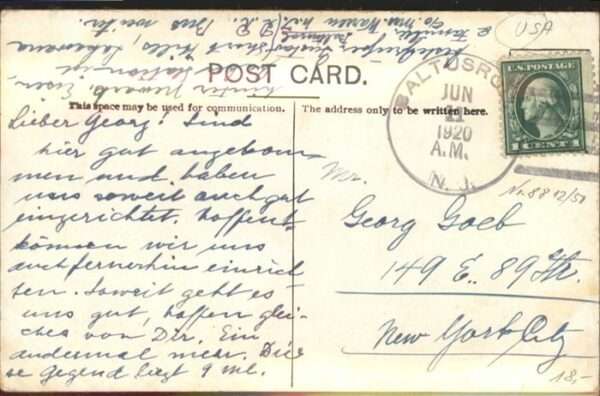 POST CARD.
This space may be used for communication.
The address only to be written here.
Lieber Georg! Sind
hier gut angekom
men und haben
uns soweit auch gut
eingerichtet, hoffentl.
können wir uns
auch fernerhin einrich
ten. Soweit geht es
uns gut, hoffen glei-
ches von Dir. Ein
andermal mehr. Die
se Gegend liegt 9 ml.
BALTUSRO
JUN
21
1920
A.M.
N. J.
U.S. POSTAGE
1 CENT 1
USA
Nr. 88 12/51
Mr.
Georg Goeb
149 E. 89 Str.
New York City
18,-